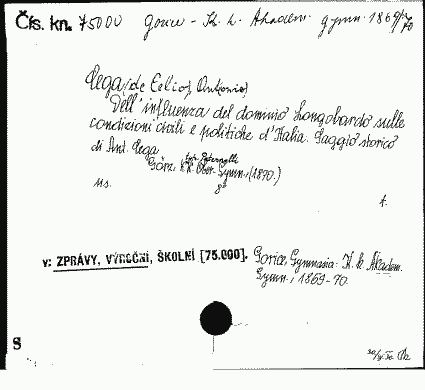 Čís. kn. 75000 Gorice - K. k. Akadem. gymn. 1869/70
Zega (de Celio), Antonio
Dell' influenza del dominio Longobardo sulle
condizioni civili e politiche d'Italia. Saggio storico
di Ant. Zega
Görz. k. k. Ober-Gymn. (1870.)
8°
v: ZPRÁVY, VÝROČNÍ, ŠKOLNÍ [75.000]. Gorice, Gymnasia: K. k. Akadem.
Gymn., 1869-70.
S